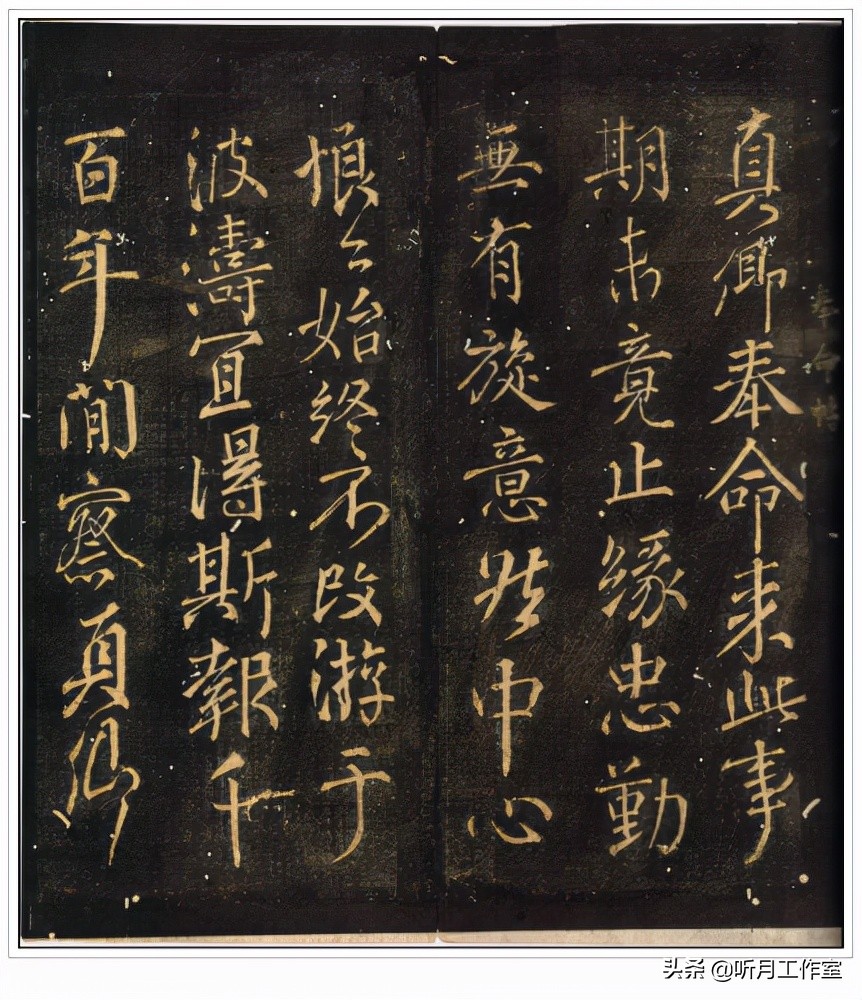 奉命帖
真卿奉命来此事
期未竟止緣忠勤
無有旋意然中心
悢々始終不改游于
波濤宜得斯報千
百年間察真卿
头条 @听月工作室